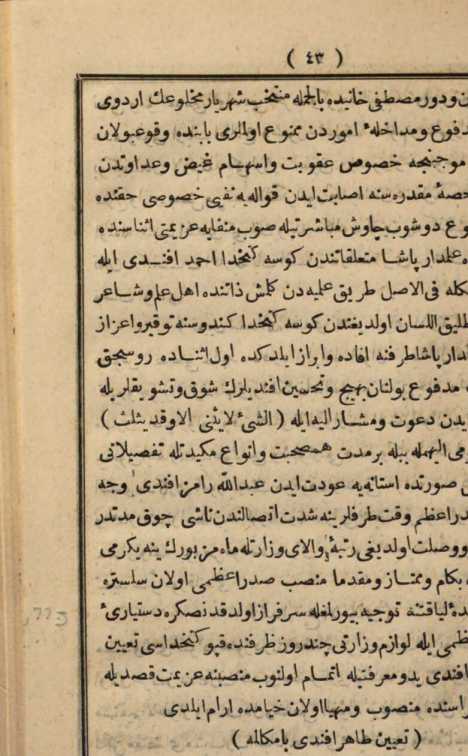 ( ٤٣ )
ن ودور مصطفى خانيده بالجمله منتخب شهريار مخلوعك اردوى
دفوع ومداخلهٔ اموردن ممنوع اولملرى بابنده وقوعبولان
موجبنجه خصوص عقوبت واسهام غيض وعداوتدن
حصهٔ مقدره سنه اصابت ايدن قواله يه نفيى خصوصى حقنده
وع دوشوب چاوش مباشرتيله صوب منفايه عزيمتى اثناسنده
ه علمدار پاشا متعلقاتندن كوسه كتخدا احمد افندى ايله
كله فى الاصل طريق علميه دن كلمش ذاتنده اهل علم وشاعر
طليق اللسان اولديغندن كوسه كتخدا كندوسنه توقير واعزاز
مدار پاشا طرفنه افاده وابراز ايلدكده اول اثناده روسجق
ه مدفوع بولنان بهيج وتحسين افنديلرك شوق وتشويقلريله
يدن دعوت ومشار اليه ايله ( الشئ لايثنى الا وقد يثلث )
ومى اليهمله بيله برمدت همصحبت وانواع مكيدتله تفصيلاتى
ى صورتده استانه يه عودت ايدن عبدالله رامز افندى وجه
در اعظم وقت طرفلرينه شدت اتصالندن ناشى چوق مدتدر
ووصلت اولديغى رتبهٔ والاى وزارتله ماه مزبورك ينه يكرمى
ه بكام وممتاز ومقدما منصب صدر اعظمى اولان سلستره
دهٔ لياقتنه توجيه بيورلمغله سرفراز اولدقدنصكره دستيارئ
ظمى ايله لوازم وزارتى چند روز ظرفنده قپو كتخداسى تعيين
افندى يد ومعرفتيله اتمام اولنوب منصبنه عزيمت قصديله
راسنده منصوب ومهيا اولان خيامده ارام ايلدى
( تعيين طاهر افندى با مكالمه )